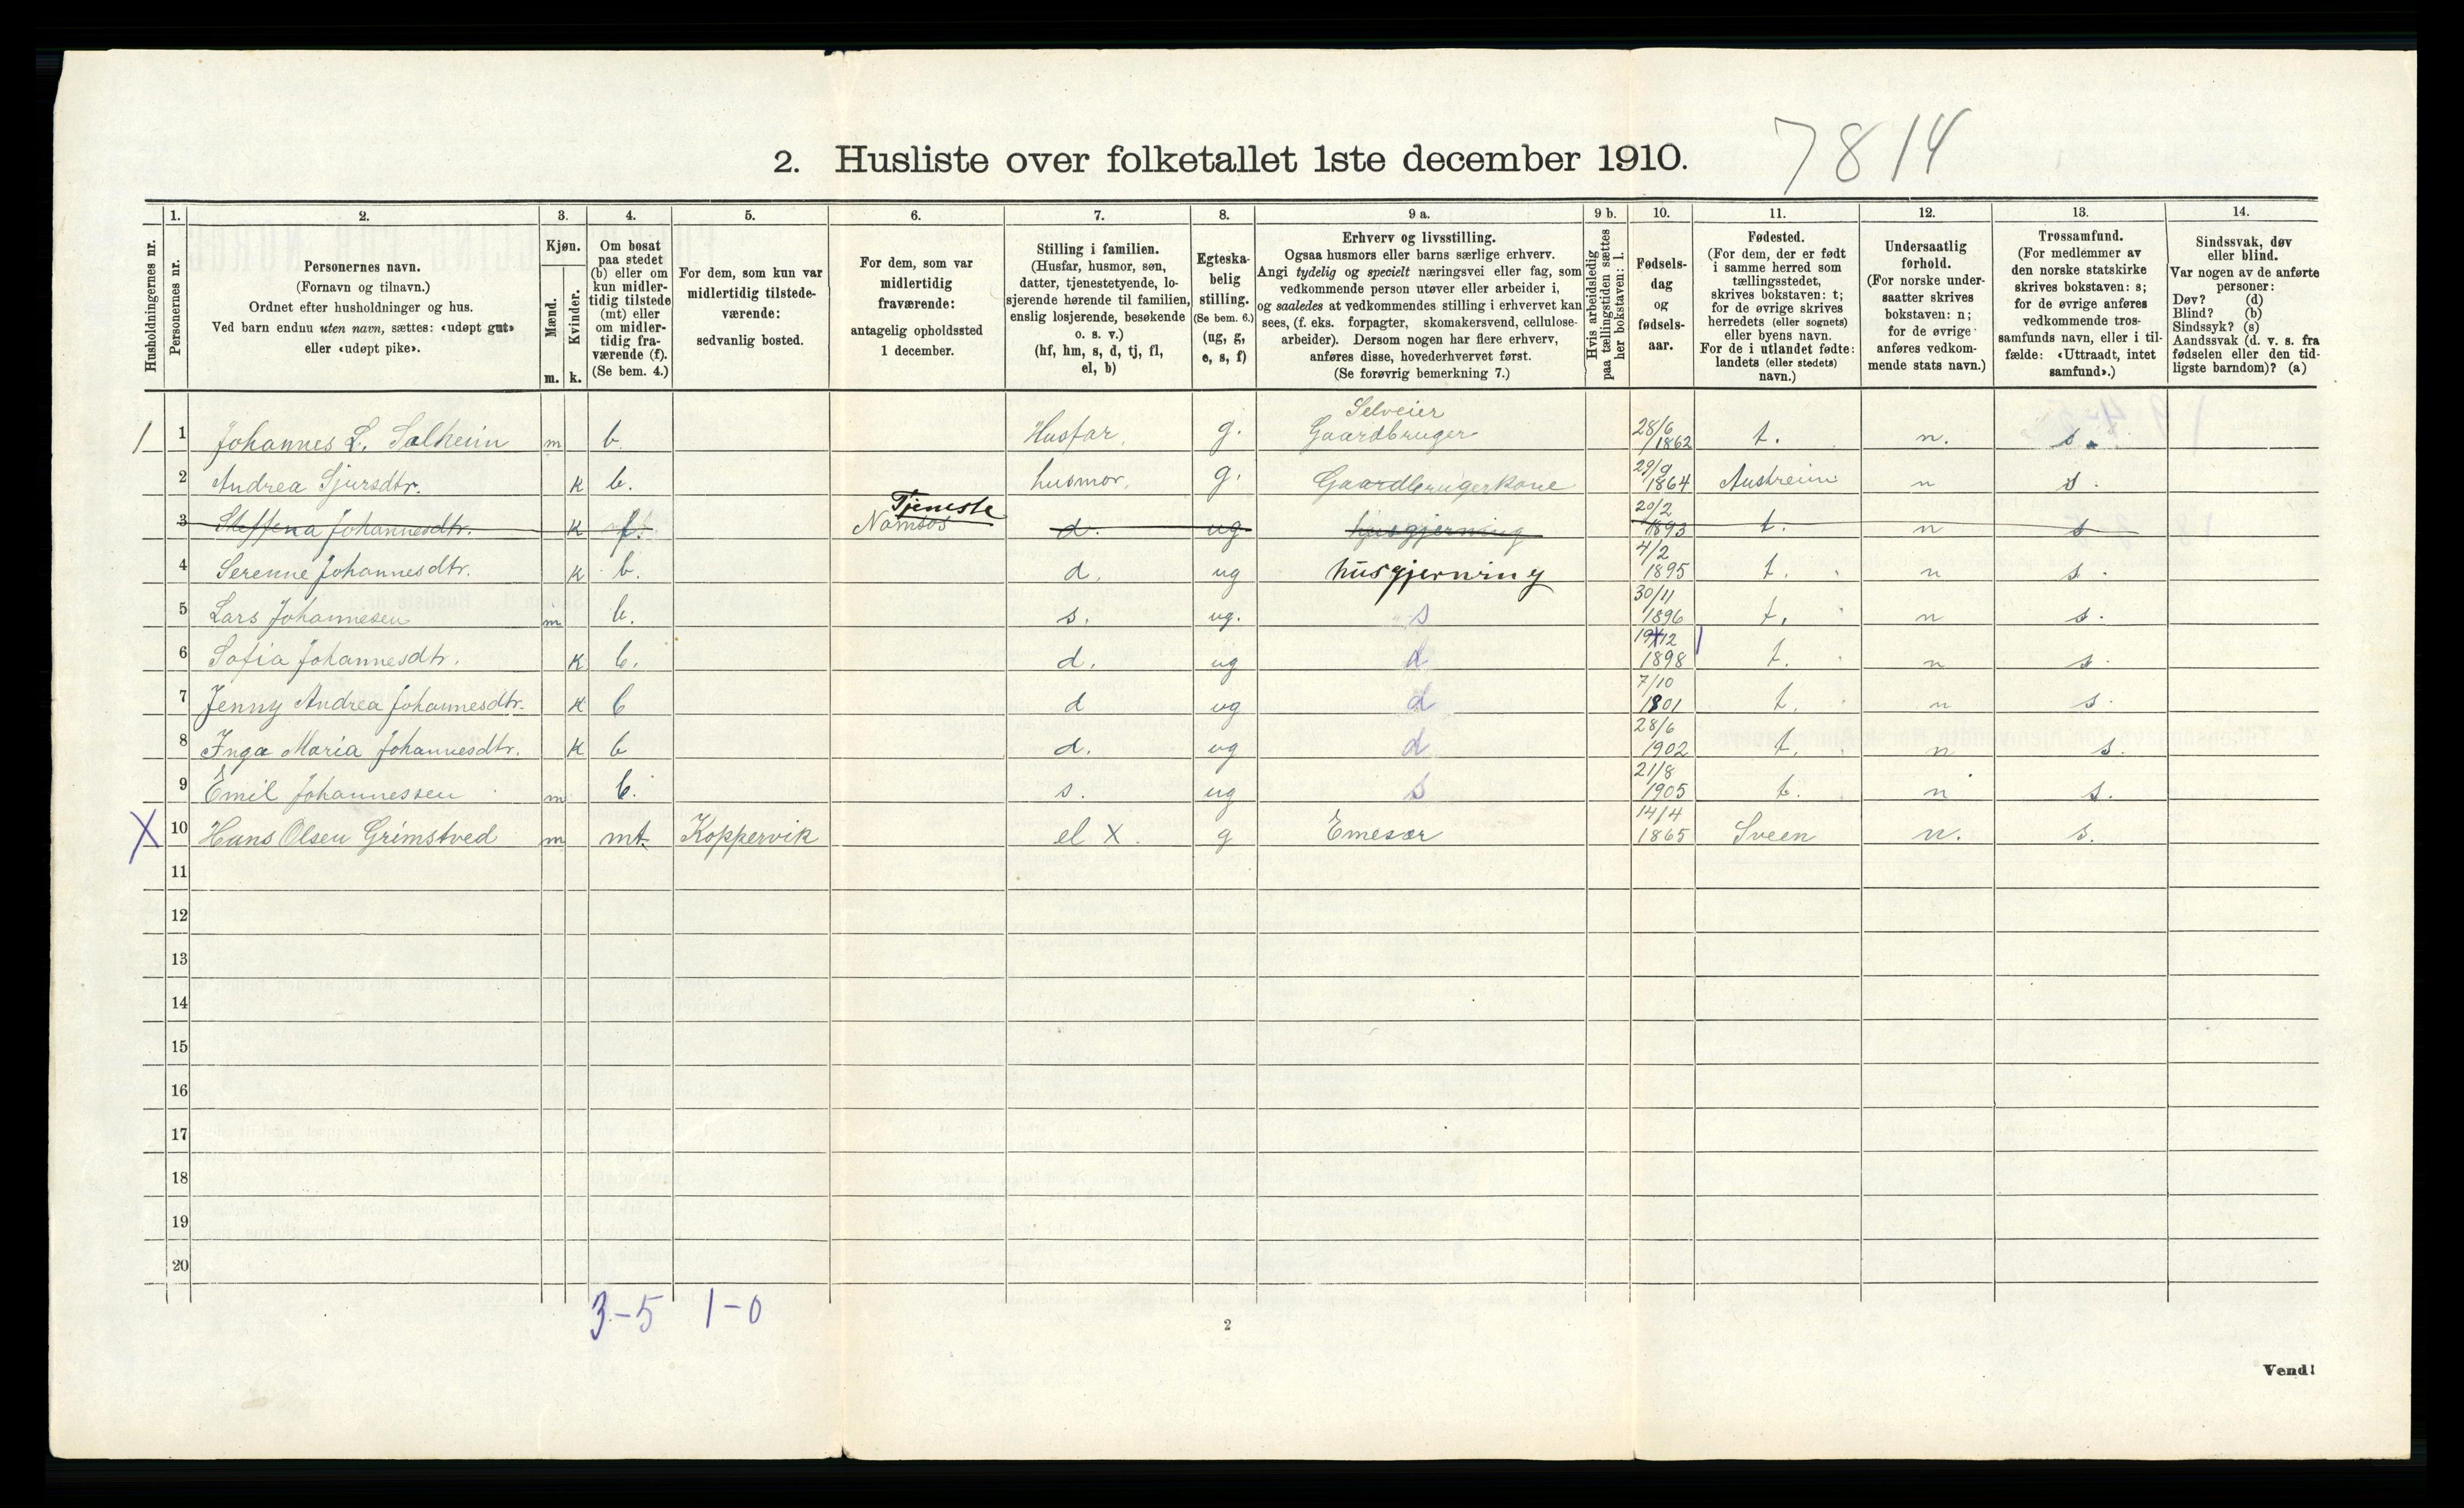 7814
2. Husliste over folketallet 1ste december 1910.
1. 2. 3. 4. 5. 6. 7. 8. 9 a. 9 b. 10. 11. 12. 13. 14.
Husholdningernes nr.
Personernes nr.
Personernes navn.
(Fornavn og tilnavn.)
Ordnet efter husholdninger og hus.
Ved barn endnu uten navn, sættes: «udøpt gut»
eller «udøpt pike».
Kjøn.
Mænd.
Kvinder.
m. k.
Om bosat
paa stedet
(b) eller om
kun midler-
tidig tilstede
(mt) eller
om midler-
tidig fra-
værende (f).
(Se bem. 4.)
For dem, som kun var
midlertidig tilstede-
værende:
sedvanlig bosted.
For dem, som var
midlertidig
fraværende:
antagelig opholdssted
1 december.
Stilling i familien.
(Husfar, husmor, søn,
datter, tjenestetyende, lo-
sjerende hørende til familien,
enslig losjerende, besøkende
o. s. v.)
(hf, hm, s, d, tj, fl,
el, b)
Egteska-
belig
stilling.
(Se bem. 6.)
(ug, g,
e, s, f)
Erhverv og livsstilling.
Ogsaa husmors eller barns særlige erhverv.
Angi tydelig og specielt næringsvei eller fag, som
vedkommende person utøver eller arbeider i,
og saaledes at vedkommendes stilling i erhvervet kan
sees, (f. eks. forpagter, skomakersvend, cellulose-
arbeider). Dersom nogen har flere erhverv,
anføres disse, hovederhvervet først.
(Se forøvrig bemerkning 7.)
Hvis arbeidsledig
paa tællingstiden sættes
her bokstaven: l.
Fødsels-
dag
og
fødsels-
aar.
Fødested.
(For dem, der er født
i samme herred som
tællingsstedet,
skrives bokstaven: t;
for de øvrige skrives
herredets (eller sognets)
eller byens navn.
For de i utlandet fødte:
landets (eller stedets)
navn.)
Undersaatlig
forhold.
(For norske under-
saatter skrives
bokstaven: n;
for de øvrige
anføres vedkom-
mende stats navn.)
Trossamfund.
(For medlemmer av
den norske statskirke
skrives bokstaven: s;
for de øvrige anføres
vedkommende tros-
samfunds navn, eller i til-
fælde: «Uttraadt, intet
samfund».)
Sindssvak, døv
eller blind.
Var nogen av de anførte
personer:
Døv? (d)
Blind? (b)
Sindssyk? (s)
Aandssvak (d. v. s. fra
fødselen eller den tid-
ligste barndom)? (a)
1 1 Johannes L. Solheim m b. Husfar. g. Selveier Gaardbruger 28/6 1862 t. n. s.
2 Andrea Sjursdtr. k b. husmor. g. Gaardbrugerkone 29/9 1864 Austreim n s.
3 Steffena Johannesdtr. k f. Tjeneste Namsos d. ug husgjerning 20/2 1893 t. n s
4 Serenne Johannesdtr. k b. d. ug husgjerning 4/2 1895 t. n s.
5 Lars Johannesen m b. s. ug. s 30/11 1896 t. n s.
6 Sofia Johannesdtr. k b. d. ug d 19/12 1898 t. n s.
7 Jenny Andrea Johannesdtr. k b d ug d 7/10 1901 t. n s.
8 Inga Maria Johannesdtr. k b d. ug d 28/6 1902 t. n s.
9 Emil Johannessen m b. s. ug s 21/8 1905 t. n s.
X 10 Hans Olsen Grimstved m mt. Koppervik el X. g Emesær 14/4 1865 Sveen n. s.
11
12
13
14
15
16
17
18
19
20
3-5 1-0
2
Vend!